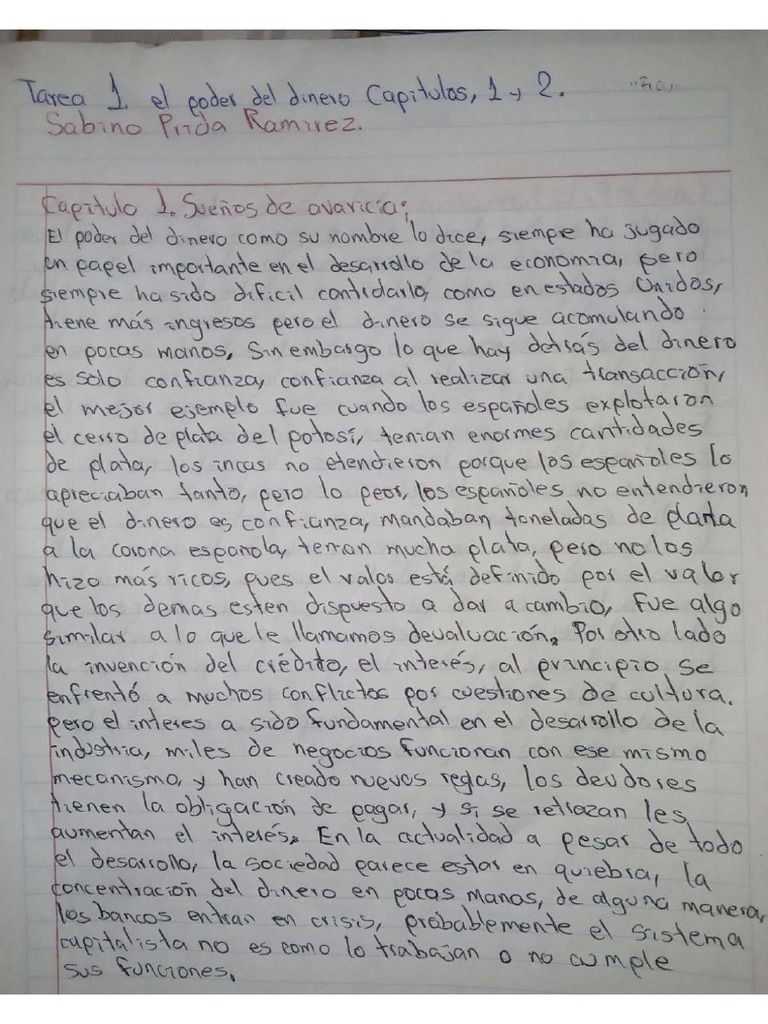 Tarea 1. el poder del dinero Capitulos, 1 y 2.
Sabino Prida Ramirez.
Capitulo 1. Sueños de avaricia;
El poder del dinero como su nombre lo dice, siempre ha jugado
un papel importante en el desarrollo de la economia, pero
siempre ha sido dificil contidarlo, como en estados Unidos,
tiene más ingresos pero el dinero se sigue acomulando
en pocas manos, Sin embargo lo que hay detrás del dinero
es solo confianza, confianza al realizar una transacción,
el mejor ejemplo fue cuando los españoles explotaron
el cerro de plata del potosí, tenian enormes cantidades
de plata, los incas no etendieron porque los españoles lo
apreciaban tanto, pero lo peor, los españoles no entendieron
que el dinero es confianza, mandaban toneladas de plata
a la corona española, tenian mucha plata, pero no los
hizo más ricos, pues el valor está definido por el valor
que los demas esten dispuesto a dar a cambio, fue algo
similar a lo que le llamamos devaluación. Por otro lado
la invención del crédito, el interés, al principio se
enfrentó a muchos conflictos por cuestiones de cultura.
pero el interes a sido fundamental en el desarrollo de la
industria, miles de negocios funcionan con ese mismo
mecanismo, y han creado nuevos reglas, los deudores
tienen la obligación de pagar, y si se retrazan les
aumentan el interés. En la actualidad a pesar de todo
el desarrollo, la sociedad parece estar en quiebra, la
concentración del dinero en pocas manos, de alguna manera,
los bancos entran en crisis, probablemente el sistema
capitalista no es como lo trabajan o no cumple
sus funciones.